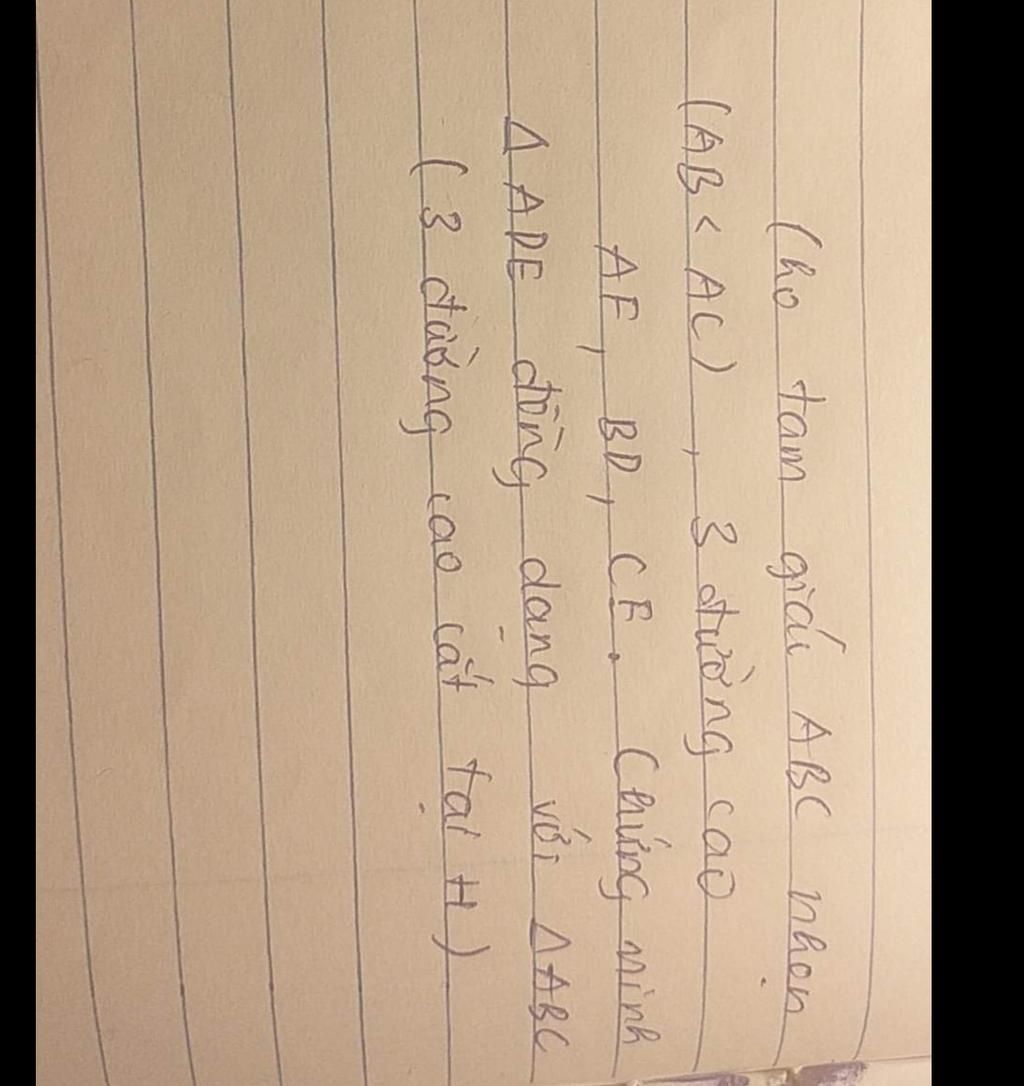 Cho tam giái ABC nhọn
(AB < AC), 3 đường cao
AF, BD, CE. Chứng minh
Δ ADE đồng dạng với Δ ABC
(3 đường cao cắt tại H)